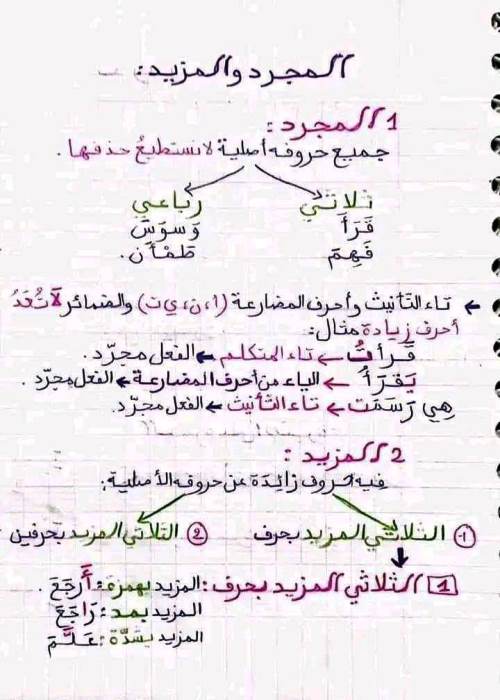 المجرد والمزيد:
1 المجرد:
جميع حروفه أصلية لا نستطيع حذفها.
ثلاثي رباعي
قَرَأَ وَسْوَسَ
فَهِمَ طَمْأَن.
← تاء التأنيث وأحرف المضارعة (ا، ن، ي، ت) والضمائر لَا تُعَدُّ
أحرف زيادة مثال:
قَرَأْتُ ← تاء المتكلم ← الفعل مجرّد.
يَقرَأُ ← الياء من أحرف المضارعة ← الفعل مجرّد.
هِيَ رَسَمَت ← تاء التأنيث ← الفعل مجرّد.
2 المزيد:
فيه حروف زائدة عن حروفه الأصلية:
1- الثلاثي المزيد بحرف 2 الثلاثي المزيد بحرفين
1 الثلاثي المزيد بحرف: المزيد بهمزة: أَرجَعَ.
المزيد بمد: رَاجَعَ
المزيد بشدّة: عَلَّمَ